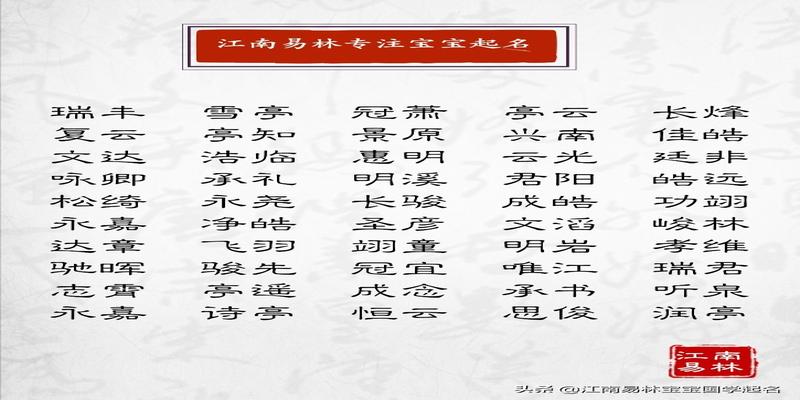 江南易林专注宝宝起名
瑞丰 雪亭 冠萧 亭云 长烽
复云 亭知 景原 兴南 佳皓
文达 浩临 惠明 云光 廷非
咏卿 承礼 明溪 君阳 皓远
松绮 永尧 长骏 成皓 功翊
永嘉 净皓 圣彦 文滔 峻林
达章 飞羽 翊童 明岩 孝维
驰晖 骏先 冠宜 唯江 瑞君
志霄 亭遥 成念 承书 听泉
永嘉 诗亭 恒云 思俊 润亭
江南
易林
头条 @江南易林宝宝国学起名